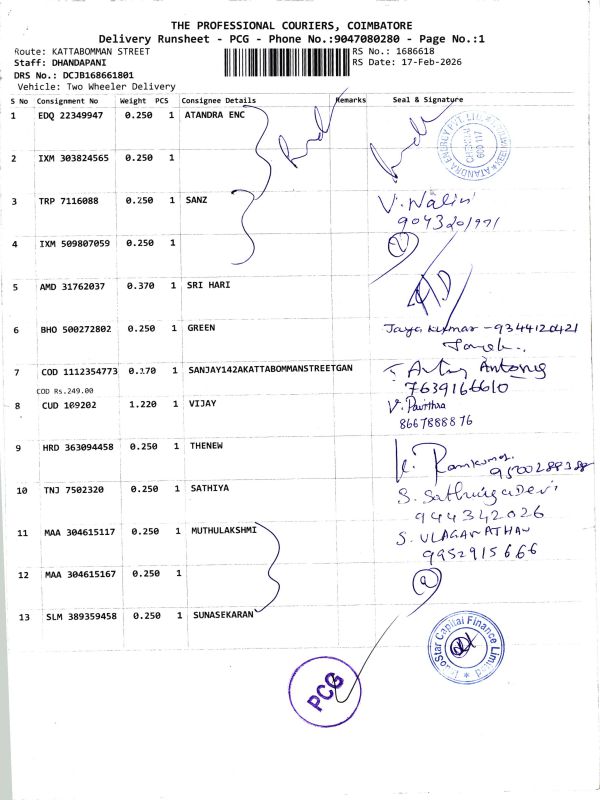 THE PROFESSIONAL COURIERS, COIMBATORE
Delivery Runsheet - PCG - Phone No.:9047080280 - Page No.:1
Route: KATTABOMMAN STREET
RS No.: 1686618
Staff: DHANDAPANI
RS Date: 17-Feb-2026
DRS No.: DCJB168661801
Vehicle: Two Wheeler Delivery
S No Consignment No Weight PCS Consignee Details Remarks Seal & Signature
1 EDQ 22349947 0.250 1 ATANDRA ENC
2 IXM 303824565 0.250 1
3 TRP 7116088 0.250 1 SANZ V. Nalini
4 IXM 509807059 0.250 1
5 AMD 31762037 0.370 1 SRI HARI
6 BHO 500272802 0.250 1 GREEN Jaya kumar - 9344120421
7 COD 1112354773 0.170 1 SANJAY142AKATTABOMMANSTREETGAN Antony
7639166610
COD Rs.249.00
8 CUD 109202 1.220 1 VIJAY V. Pavithra
8667888876
9 HRD 363094458 0.250 1 THENEW K. Ramkumar
9500288388
10 TNJ 7502320 0.250 1 SATHIYA S. Sathiya Devi
944342026
11 MAA 304615117 0.250 1 MUTHULAKSHMI S. ULAGANATHAN
9952915666
12 MAA 304615167 0.250 1 2
13 SLM 389359458 0.250 1 SUNASEKARAN
IndoStar Capital Finance Limited
PCG